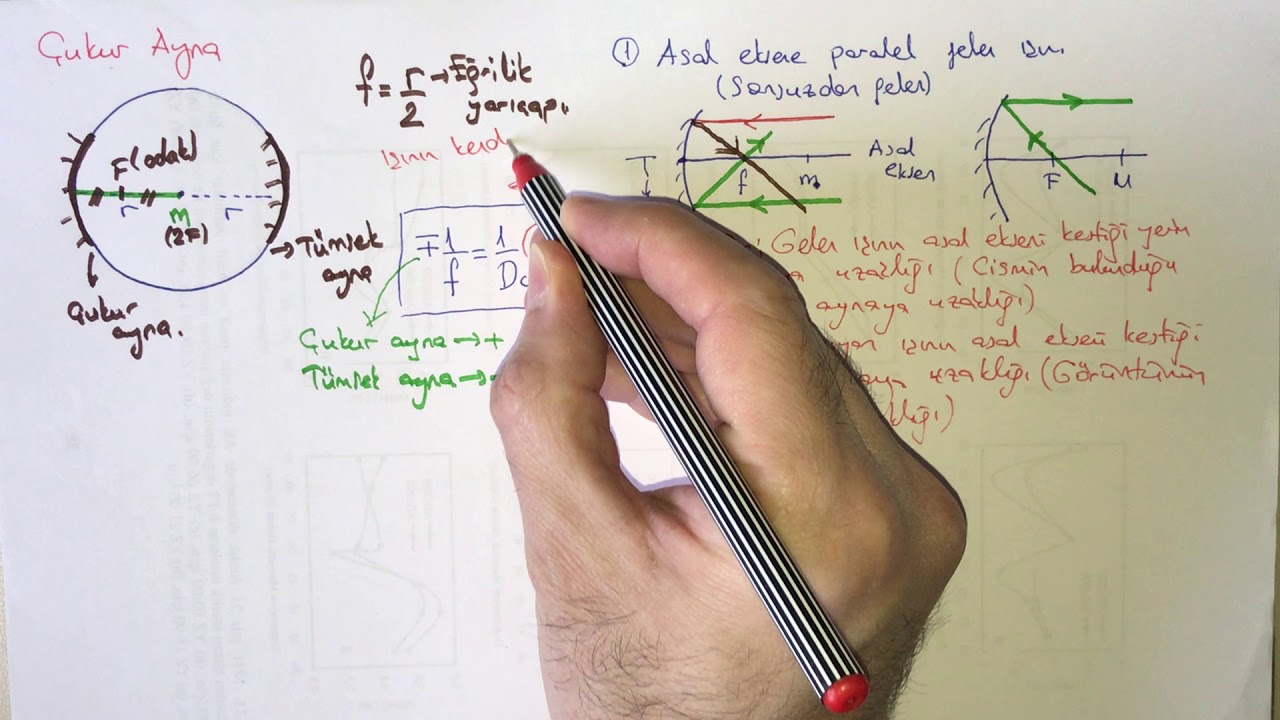 Çukur Ayna
F(odak)
r
m
(2F)
r
Çukur
ayna.
Tümsek
ayna
f = r/2 → Eğrilik
yarıçapı
Işının kend
∓ 1/f = 1/Dc
Çukur ayna → +
Tümsek ayna → -
① Asal eksene paralel gelen ışın
(Sonsuzdan gelen)
f
m
Asal
eksen
F
M
: Gelen ışının asal ekseni kestiği yerin
uzaklığı (Cismin bulunduğu
aynaya uzaklığı)
ışının asal ekseni kestiği
uzaklığı (Görüntünün